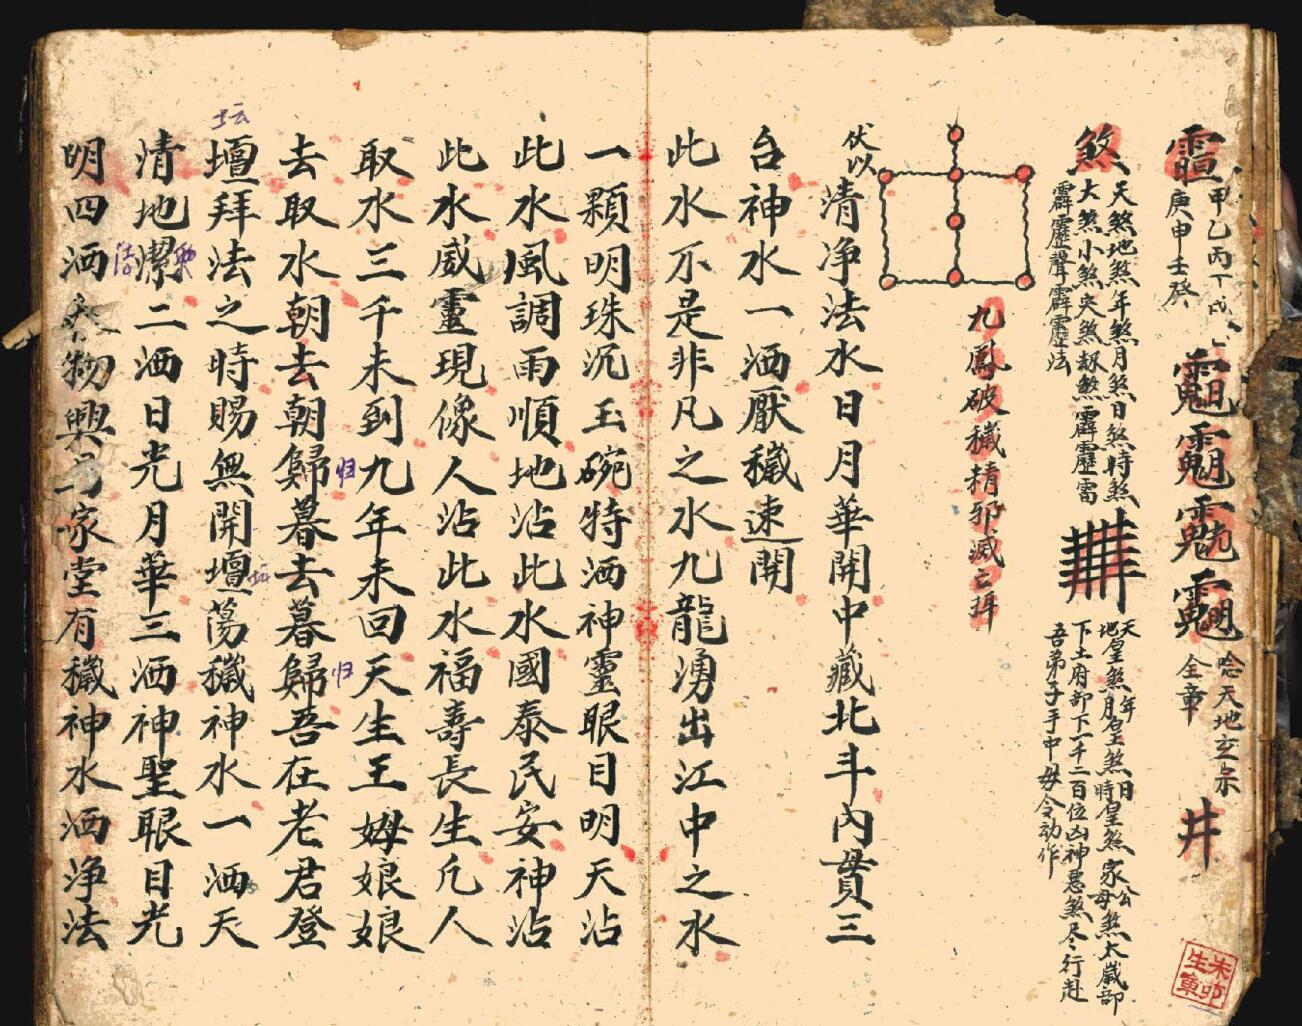 甲乙丙丁戊
庚申壬癸
唸天地玄宗
全章
井
煞
天煞地煞年煞月煞日煞時煞
大煞小煞夾煞
煞霹靂雷
霹靂聲霹靂法
天年
地皇煞月皇煞日時皇煞家公母煞太歲部
下土府部下一千二百位凶神惡煞尽行赴
吾弟子手中毋令动作
九鳳破穢精邪滅亡
伏以
清净法水日月華開中藏北斗內貫三
台神水一洒厭穢速開
此水不是非凡之水九龍湧出江中之水
一顆明珠沉玉碗特洒神靈眼目明天沾
此水風調雨順地沾此水國泰民安神沾
此水威靈現像人沾此水福壽長生凡人
取水三千未到九年未回天生王姆娘娘
归
归
去取水朝去朝歸暮去暮歸吾在老君登
坛
壇拜法之時賜無開壇蕩穢神水一洒天
坛
清地潔二洒日光月華三洒神聖眼目光
洁
明四洒物興家堂有穢神水洒净法
朱卯生宣